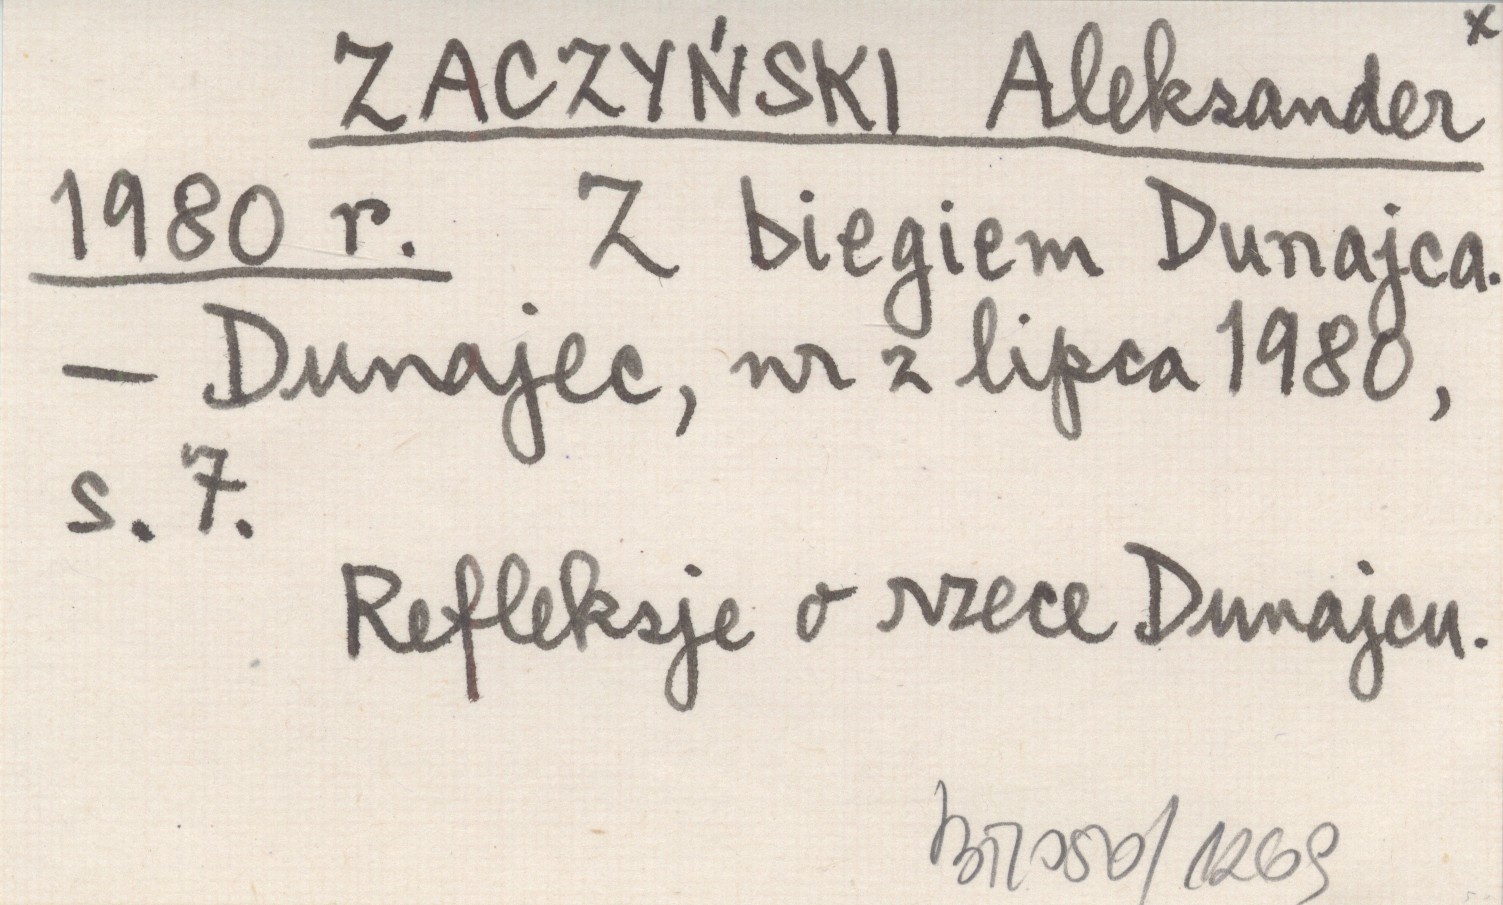 x
ZACZYŃSKI Aleksander
1980 r. Z biegiem Dunajca.
– Dunajec, nr z lipca 1980,
s. 7.
Refleksje o rzece Dunajcu.
/1269